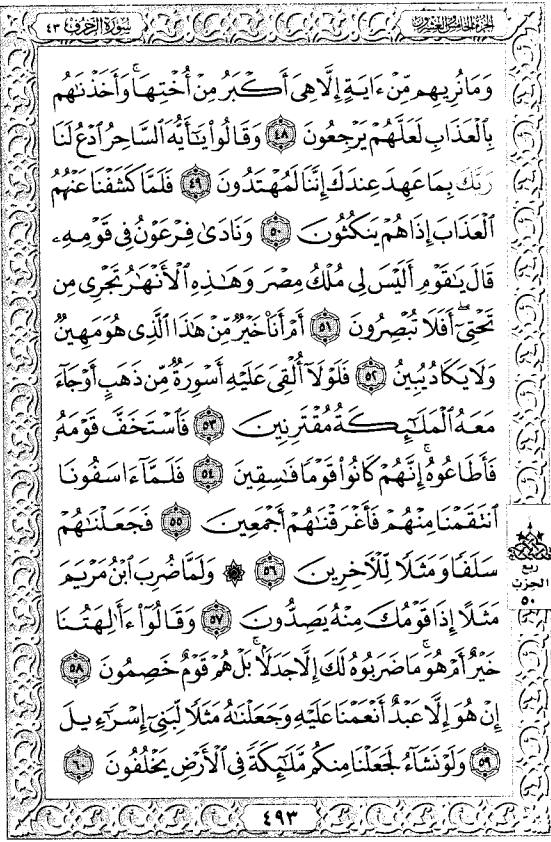 سورة الزخرف ٤٣
الجزء الخامس والعشرون
وَمَا نُرِيهِم مِّنْ ءَايَةٍ إِلَّا هِىَ أَكْبَرُ مِنْ أُخْتِهَا ۖ وَأَخَذْنَٰهُم
بِالْعَذَابِ لَعَلَّهُمْ يَرْجِعُونَ ٤٨ وَقَالُوا۟ يَٰٓأَيُّهَ السَّاحِرُ ادْعُ لَنَا
رَبَّكَ بِمَا عَهِدَ عِندَكَ إِنَّنَا لَمُهْتَدُونَ ٤٩ فَلَمَّا كَشَفْنَا عَنْهُمُ
الْعَذَابَ إِذَا هُمْ يَنكُثُونَ ٥٠ وَنَادَىٰ فِرْعَوْنُ فِى قَوْمِهِۦ
قَالَ يَٰقَوْمِ أَلَيْسَ لِى مُلْكُ مِصْرَ وَهَٰذِهِ الْأَنْهَٰرُ تَجْرِى مِن
تَحْتِىٓ ۖ أَفَلَا تُبْصِرُونَ ٥١ أَمْ أَنَا۠ خَيْرٌ مِّنْ هَٰذَا الَّذِى هُوَ مَهِينٌ
وَلَا يَكَادُ يُبِينُ ٥٢ فَلَوْلَآ أُلْقِىَ عَلَيْهِ أَسْوِرَةٌ مِّن ذَهَبٍ أَوْ جَآءَ
مَعَهُ الْمَلَٰٓئِكَةُ مُقْتَرِنِينَ ٥٣ فَاسْتَخَفَّ قَوْمَهُۥ
فَأَطَاعُوهُ ۚ إِنَّهُمْ كَانُوا۟ قَوْمًا فَٰسِقِينَ ٥٤ فَلَمَّآ ءَاسَفُونَا
انتَقَمْنَا مِنْهُمْ فَأَغْرَقْنَٰهُمْ أَجْمَعِينَ ٥٥ فَجَعَلْنَٰهُمْ
سَلَفًا وَمَثَلًا لِّلْءَاخِرِينَ ٥٦ ۞ وَلَمَّا ضُرِبَ ابْنُ مَرْيَمَ
مَثَلًا إِذَا قَوْمُكَ مِنْهُ يَصِدُّونَ ٥٧ وَقَالُوٓا۟ ءَأَٰلِهَتُنَا
خَيْرٌ أَمْ هُوَ ۚ مَا ضَرَبُوهُ لَكَ إِلَّا جَدَلًۢا ۚ بَلْ هُمْ قَوْمٌ خَصِمُونَ ٥٨
إِنْ هُوَ إِلَّا عَبْدٌ أَنْعَمْنَا عَلَيْهِ وَجَعَلْنَٰهُ مَثَلًا لِّبَنِىٓ إِسْرَٰٓءِيلَ
٥٩ وَلَوْ نَشَآءُ لَجَعَلْنَا مِنكُم مَّلَٰٓئِكَةً فِى الْأَرْضِ يَخْلُفُونَ ٦٠
ربع
الحزب
٥٠
٤٩٣